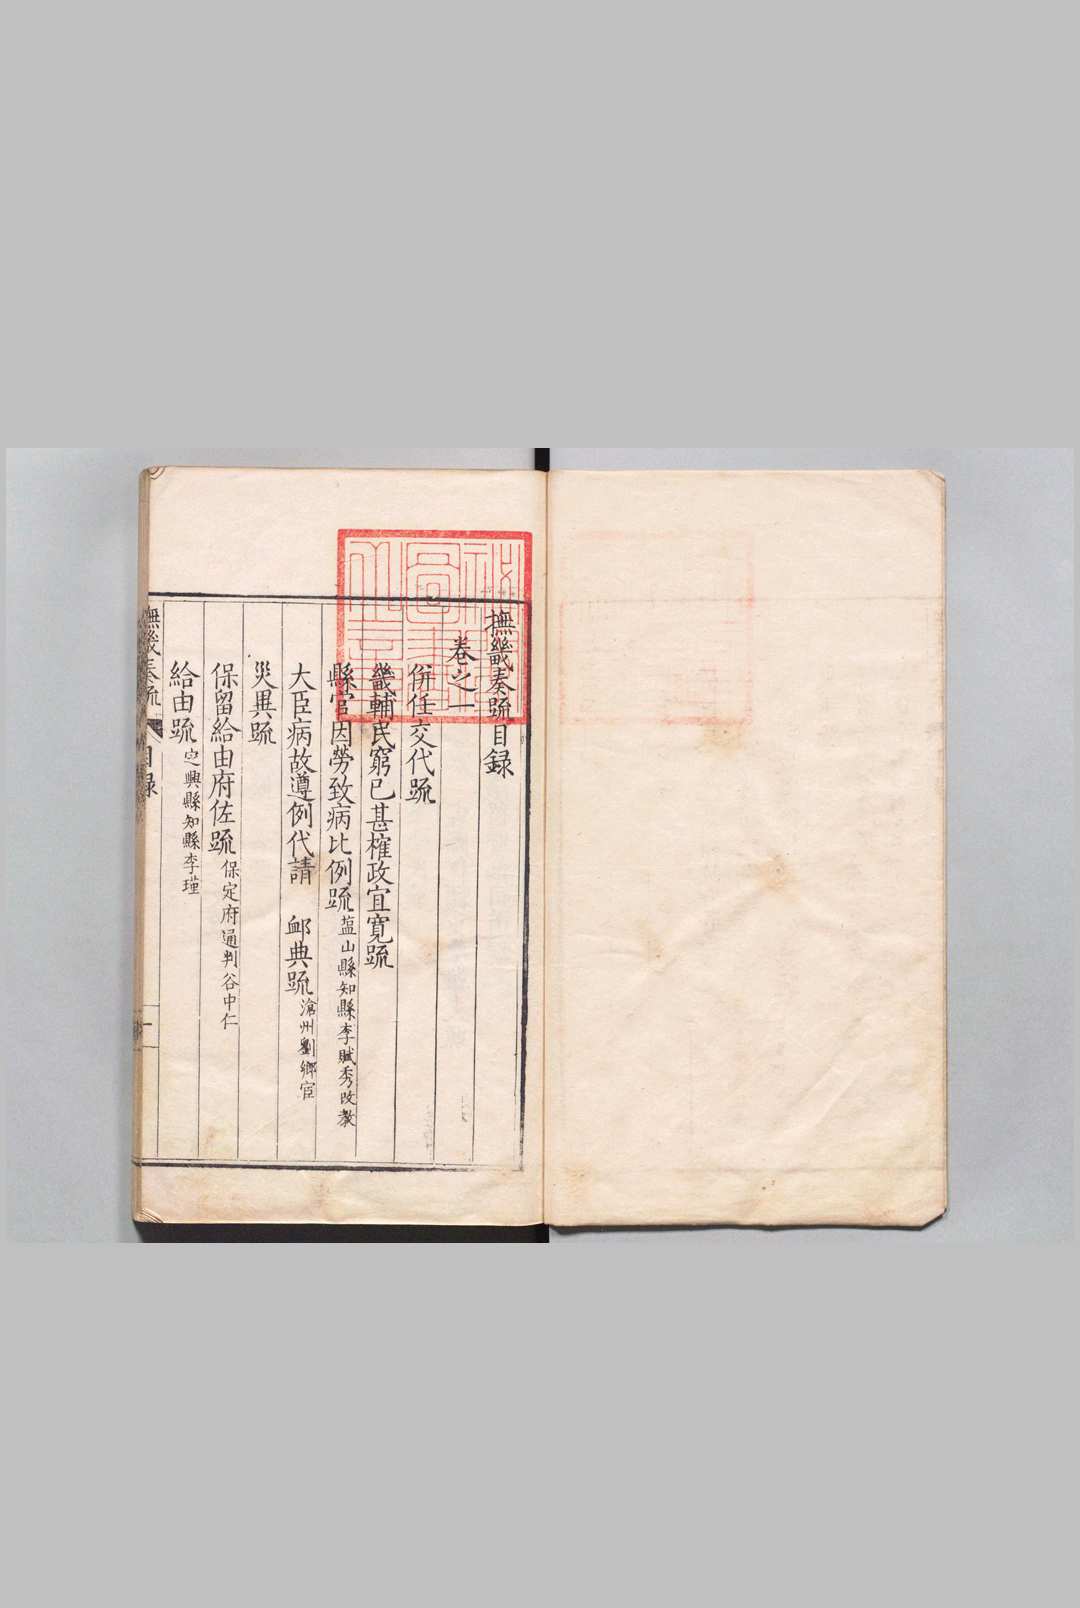 撫畿奏䟽目録
卷之一
併任交代䟽
畿輔民窮已甚榷政宜寬䟽
縣官因勞致病比例䟽 盐山縣知縣李賦秀改教
大臣病故遵例代請 䘏典䟽 滄州劉鄉宦
災異䟽
保留給由府佐䟽 保定府通判谷中仁
給由䟽 定興縣知縣李瑾
撫畿奏䟽 目録 一